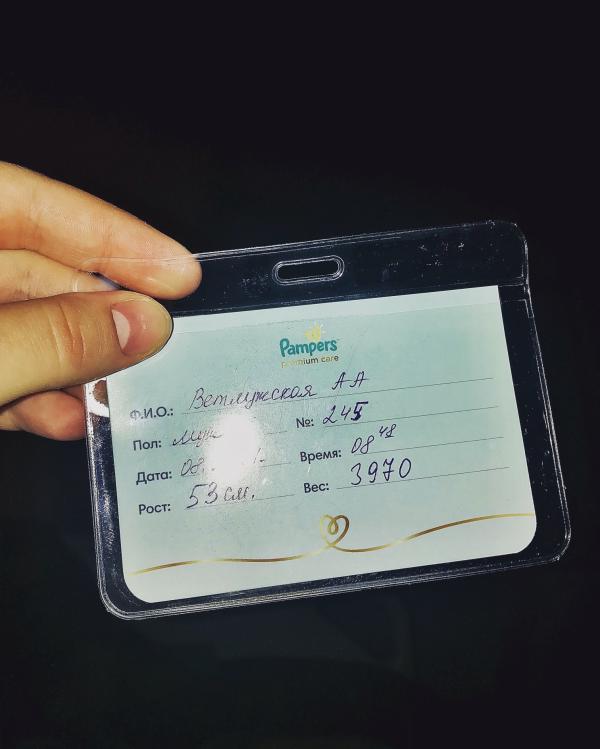 Pampers
premium care
Ф.И.О.: Ветлужская А А
Пол: Муж №: 245
Дата: 08. Время: 08 48
Рост: 53 см. Вес: 3970